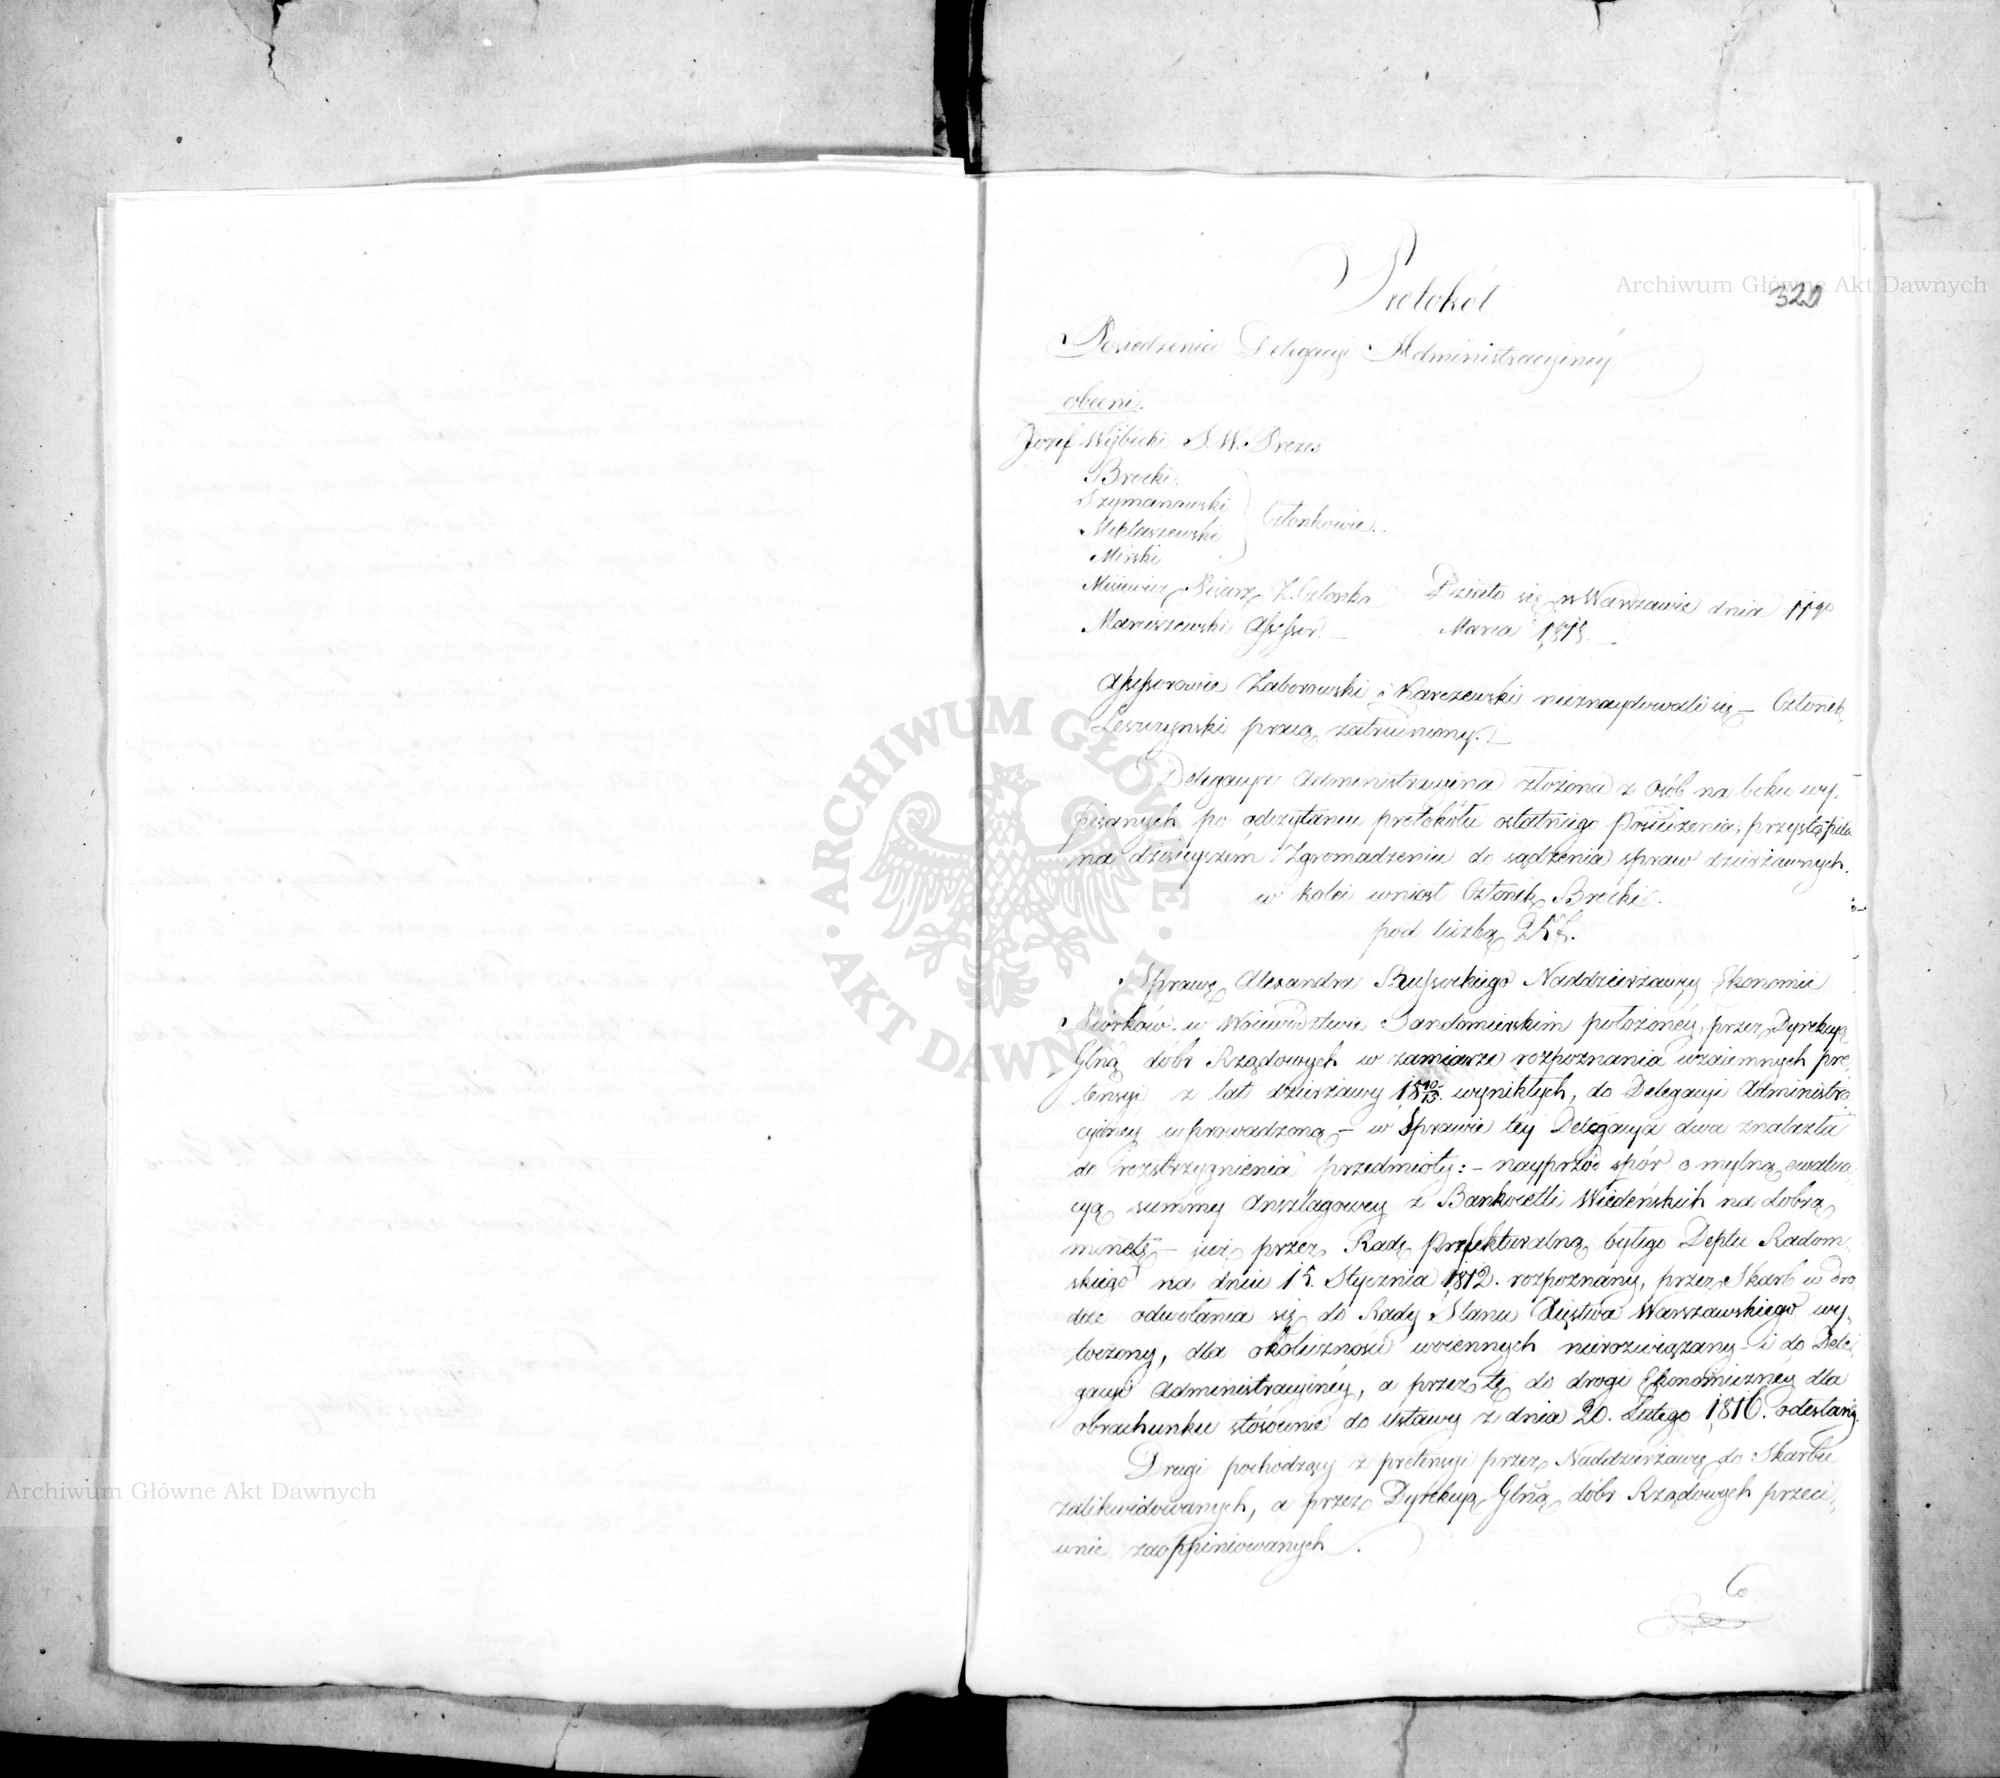 Protokół
320
Posiedzenia Delegacyi Administracyinéy
obecni.
Jozef Wybicki S. W. Prezes
Brocki.
Szymanowski
Miklaszewski
Mirski
Członkowie.
Misiewicz Pisarz Z. Członka
Działo się w Warszawie dnia 11go
Maniszewski Assessor.
Marca 1818.
Assessorowie Zaborowski i Karczewski nieznaydowali się – Członek
Leszczynski pracą zatrudniony.
Delegacya Administracyina złożona z osób na boku wy-
pisanych po odczytaniu protokołu ostatniego Posiedzenia, przystąpiła
na dzisieyszem Zgromadzeniu do sądzenia spraw dzierżawnych.
w kolei wniosł Członek Brocki.
pod liczbą
Sprawę Alexandra Naddzierżawcy Ekonomii
w Woiewodztwie Sandomierskim położonéy, przez Dyrekcyą
Glną dobr Rządowych w zamiarze rozpoznania wzaiemnych pre-
tensyi z lat dzierżawy 18 10/13. wynikłych, do Delegacyi Administra-
cyinéy wprowadzoną – w Sprawie téy Delegacya dwa znalazła
do rozstrzygnienia przedmioty: – nayprzód spór o mylną ewalua-
cyą summy Anszlagowéy z Bankocetli Wiedeńskich na dobrą
monetę – już przez Radę Prefekturalną byłego Deptu Radom-
skiego na dniu 15. Stycznia 1812. rozpoznany, przez Skarb w dro-
dze odwołania się do Rady Stanu Xięstwa Warszawskiego wy-
toczony, dla okoliczności woiennych nierozwiązany – i do Dele-
gacyi Administracyinéy, a przez tę do drogi Ekonomicznéy dla
obrachunku stósownie do ustawy z dnia 20. Lutego 1816. odesłany.
Drugi pochodzący z pretensyi przez Naddzierżawcę do Skarbu
zalikwidowanych, a przez Dyrekcyą Glną dóbr Rządowych przeci-
wnie zaoppiniowanych.
Co
Archiwum Główne Akt Dawnych
ARCHIWUM GŁÓWNE AKT DAWNYCH
Archiwum Główne Akt Dawnych